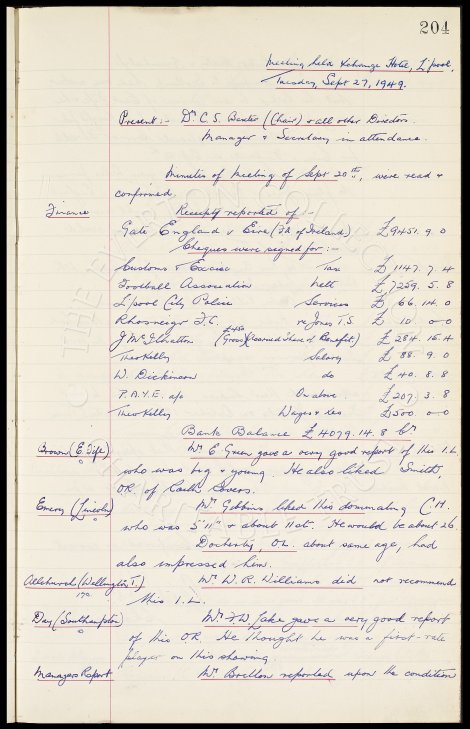 204
Meeting held Xchange Hotel, L'pool,
Tuesday, Sept 27, 1949.
Present:- Dr. C. S. Baxter (Chair) & all other Directors.
Manager & Secretary in attendance.
Minutes of Meeting of Sept 20th, were read &
confirmed.
Finance Receipts reported of :-
Gate England v Eire (F.A. of Ireland) £9451. 9. 0
Cheques were signed for :-
Customs & Excise Tax £1147. 7. 4
Football Association nett £7259. 5. 8
L'pool City Police Services £66. 14. 0
Rhosneigr F.C. re Jones T.S. £10 0-0
J McIlhatton (Accrued Share of Benefit) £284. 15. 4
Theo Kelly Salary £88. 9. 0
W. Dickinson do £40. 8. 8
P.A.Y.E. a/c On above £207. 3. 8
Theo Kelly Wages & Xes £500 0-0
Bank Balance £4079. 14. 8 Cr
Brown (E. Fife) Mr E. Green gave a very good report of this I.L
who was big & young. He also liked Smith,
OR. of Raith Rovers.
Emery (Lincoln) Mr Gibbins liked this dominating C.H.
who was 5' 11" & about 11 st. He would be about 26
Docherty, OL. about same age, had
also impressed him.
Allchurch (Wellington T.) Mr W. R. Williams did not recommend
this I.L.
Day (Southampton) Mr F. W. Lake gave a very good report
of this OR He thought he was a first-rate
player on this showing.
Managers Report Mr Britton reported upon the condition